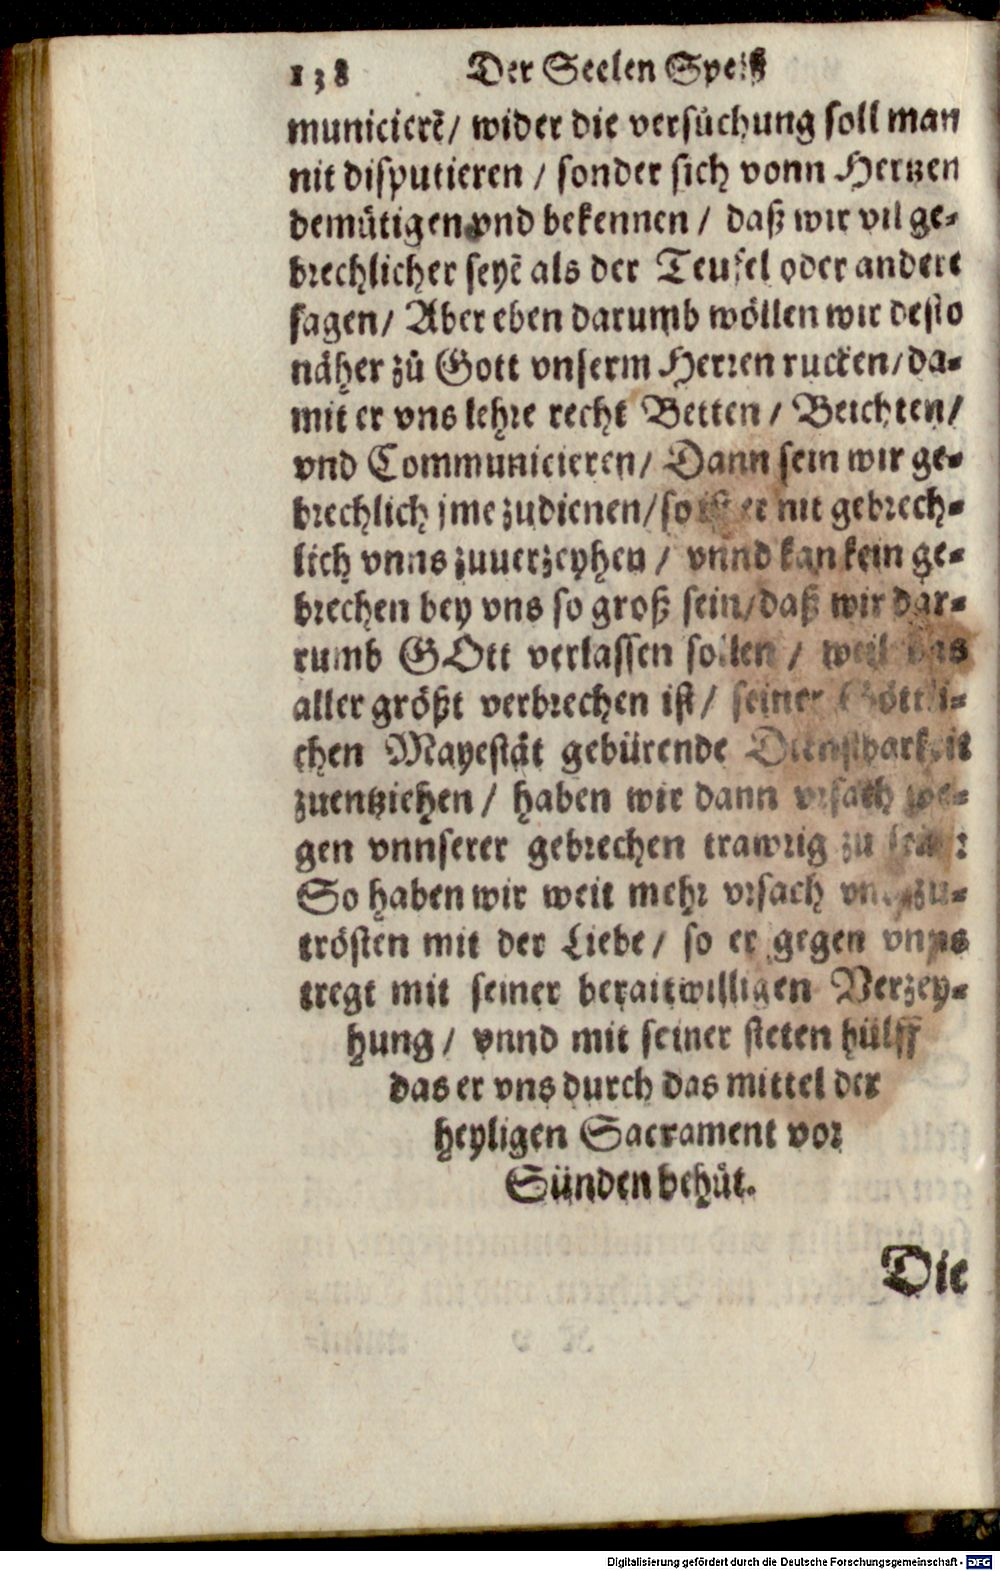 138 Der Seelen Speiß
municierẽ/ wider die versůchung soll man
nit disputieren / sonder sich vonn Hertzen
demütigen vnd bekennen / daß wir vil ge-
brechlicher seyẽ als der Teufel oder andere
sagen/ Aber eben darumb wöllen wir desto
näher zů Gott vnserm Herren rucken/da-
mit er vns lehre recht Betten / Beichten/
vnd Communicieren/ Dann sein wir ge-
brechlich jme zudienen/so ist er nit gebrech-
lich vnns zuuerzeyhen / vnnd kan kein ge-
brechen bey vns so groß sein/daß wir dar-
rumb GOtt verlassen sollen / weil das
aller größt verbrechen ist/ seiner Göttli-
chen Mayestät gebürende Dienstbarkeit
zuentziehen / haben wir dann vrsach we-
gen vnnserer gebrechen trawrig zu sein:
So haben wir weit mehr vrsach vns zu-
trösten mit der Liebe/ so er gegen vnns
tregt mit seiner beraitwilligen Verzey-
hung / vnnd mit seiner steten hülff
das er vns durch das mittel der
heyligen Sacrament vor
Sünden behůt.
Die
Digitalisierung gefördert durch die Deutsche Forschungsgemeinschaft - DFG